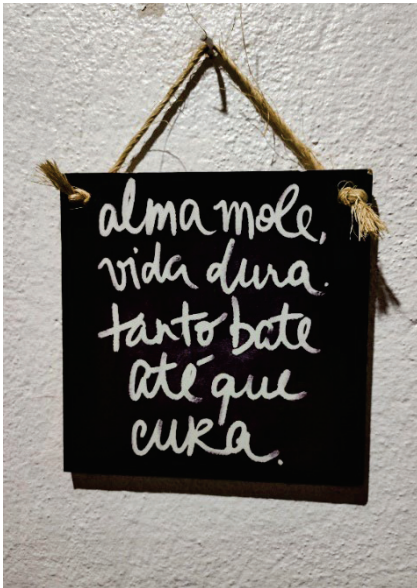 alma mole,
vida dura.
tanto bate
até que
cura.